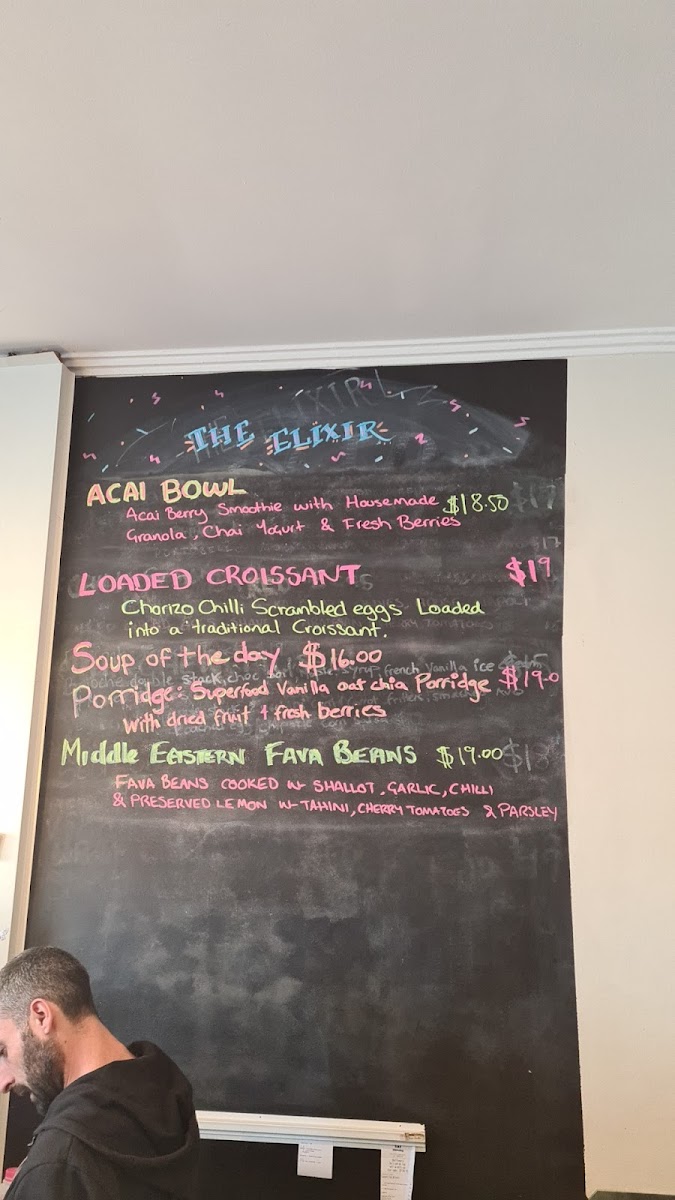 THE ELIXIR
ACAI BOWL
Acai Berry Smoothie with Housemade $18.50
Granola, Chai Yogurt & Fresh Berries
LOADED CROISSANT $19
Chorizo Chilli Scrambled eggs Loaded
into a traditional Croissant.
Soup of the day $16.00
stack, choc syrup french vanilla ice
Porridge: Superfood Vanilla oat chia Porridge $19.0
with dried fruit + fresh berries
Middle EASTERN FAVA BEANS $19.00
FAVA BEANS COOKED W SHALLOT, GARLIC, CHILLI
& PRESERVED LEMON W TAHINI, CHERRY TOMATOES & PARSLEY